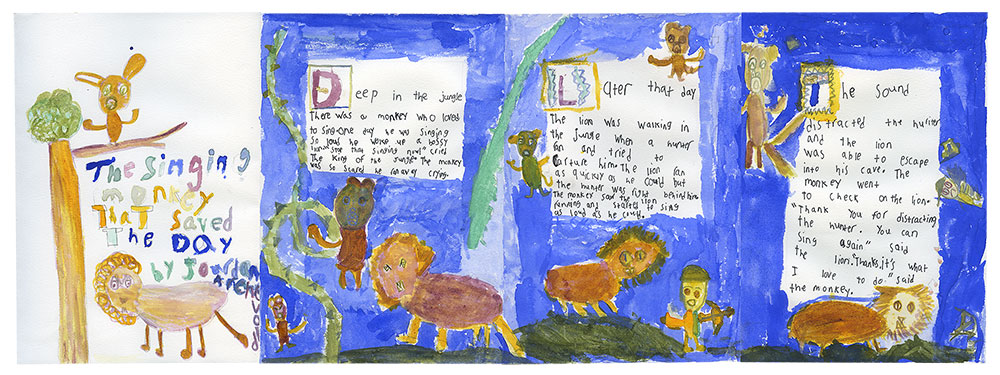 The Singing
monkey
ThaT Saved
The DAY
by Jourdan
Deep in the jungle
There was a monkey who loved
to sing. one day he was singing
so loud he woke up a bossy
lion. "Stop that singing now!" cried
The King of the Jungle. The monkey
was so scared he ran away crying.
Later that day
The lion was walking in
the jungle when a hunter
ran and tried to
capture him. The lion ran
as quickly as he could but
the hunter was right behind him.
The monkey saw the lion
running and started to sing
as loud as he could.
The Sound
distracted the hunter
and the lion
was able to escape
into his cave. The
monkey went
to check on the lion.
"Thank You for distracting
the hunter. You can
Sing again" said
the lion. "Thanks, it's what
I love to do." said
the monkey.